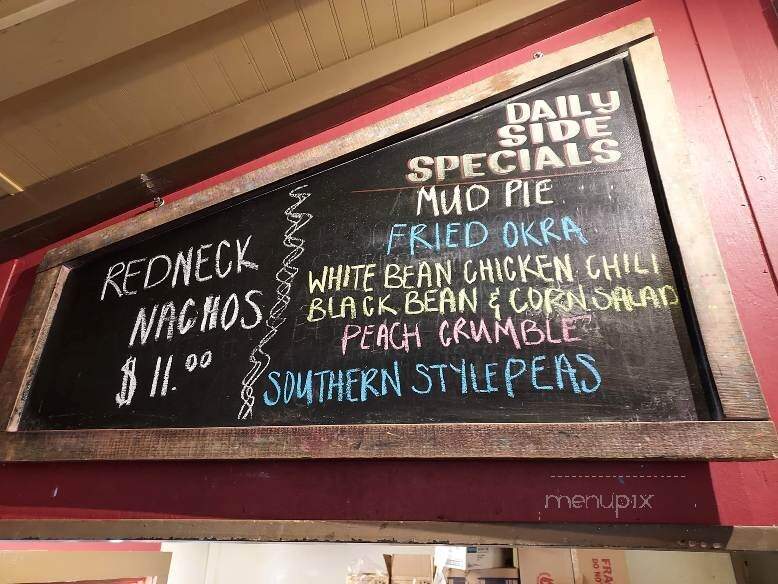 REDNECK
NACHOS
$11.00
DAILY
SIDE
SPECIALS
MUD PIE
FRIED OKRA
WHITE BEAN CHICKEN CHILI
BLACK BEAN & CORN SALAD
PEACH CRUMBLE
SOUTHERN STYLE PEAS
menupix
FRA
DO NO